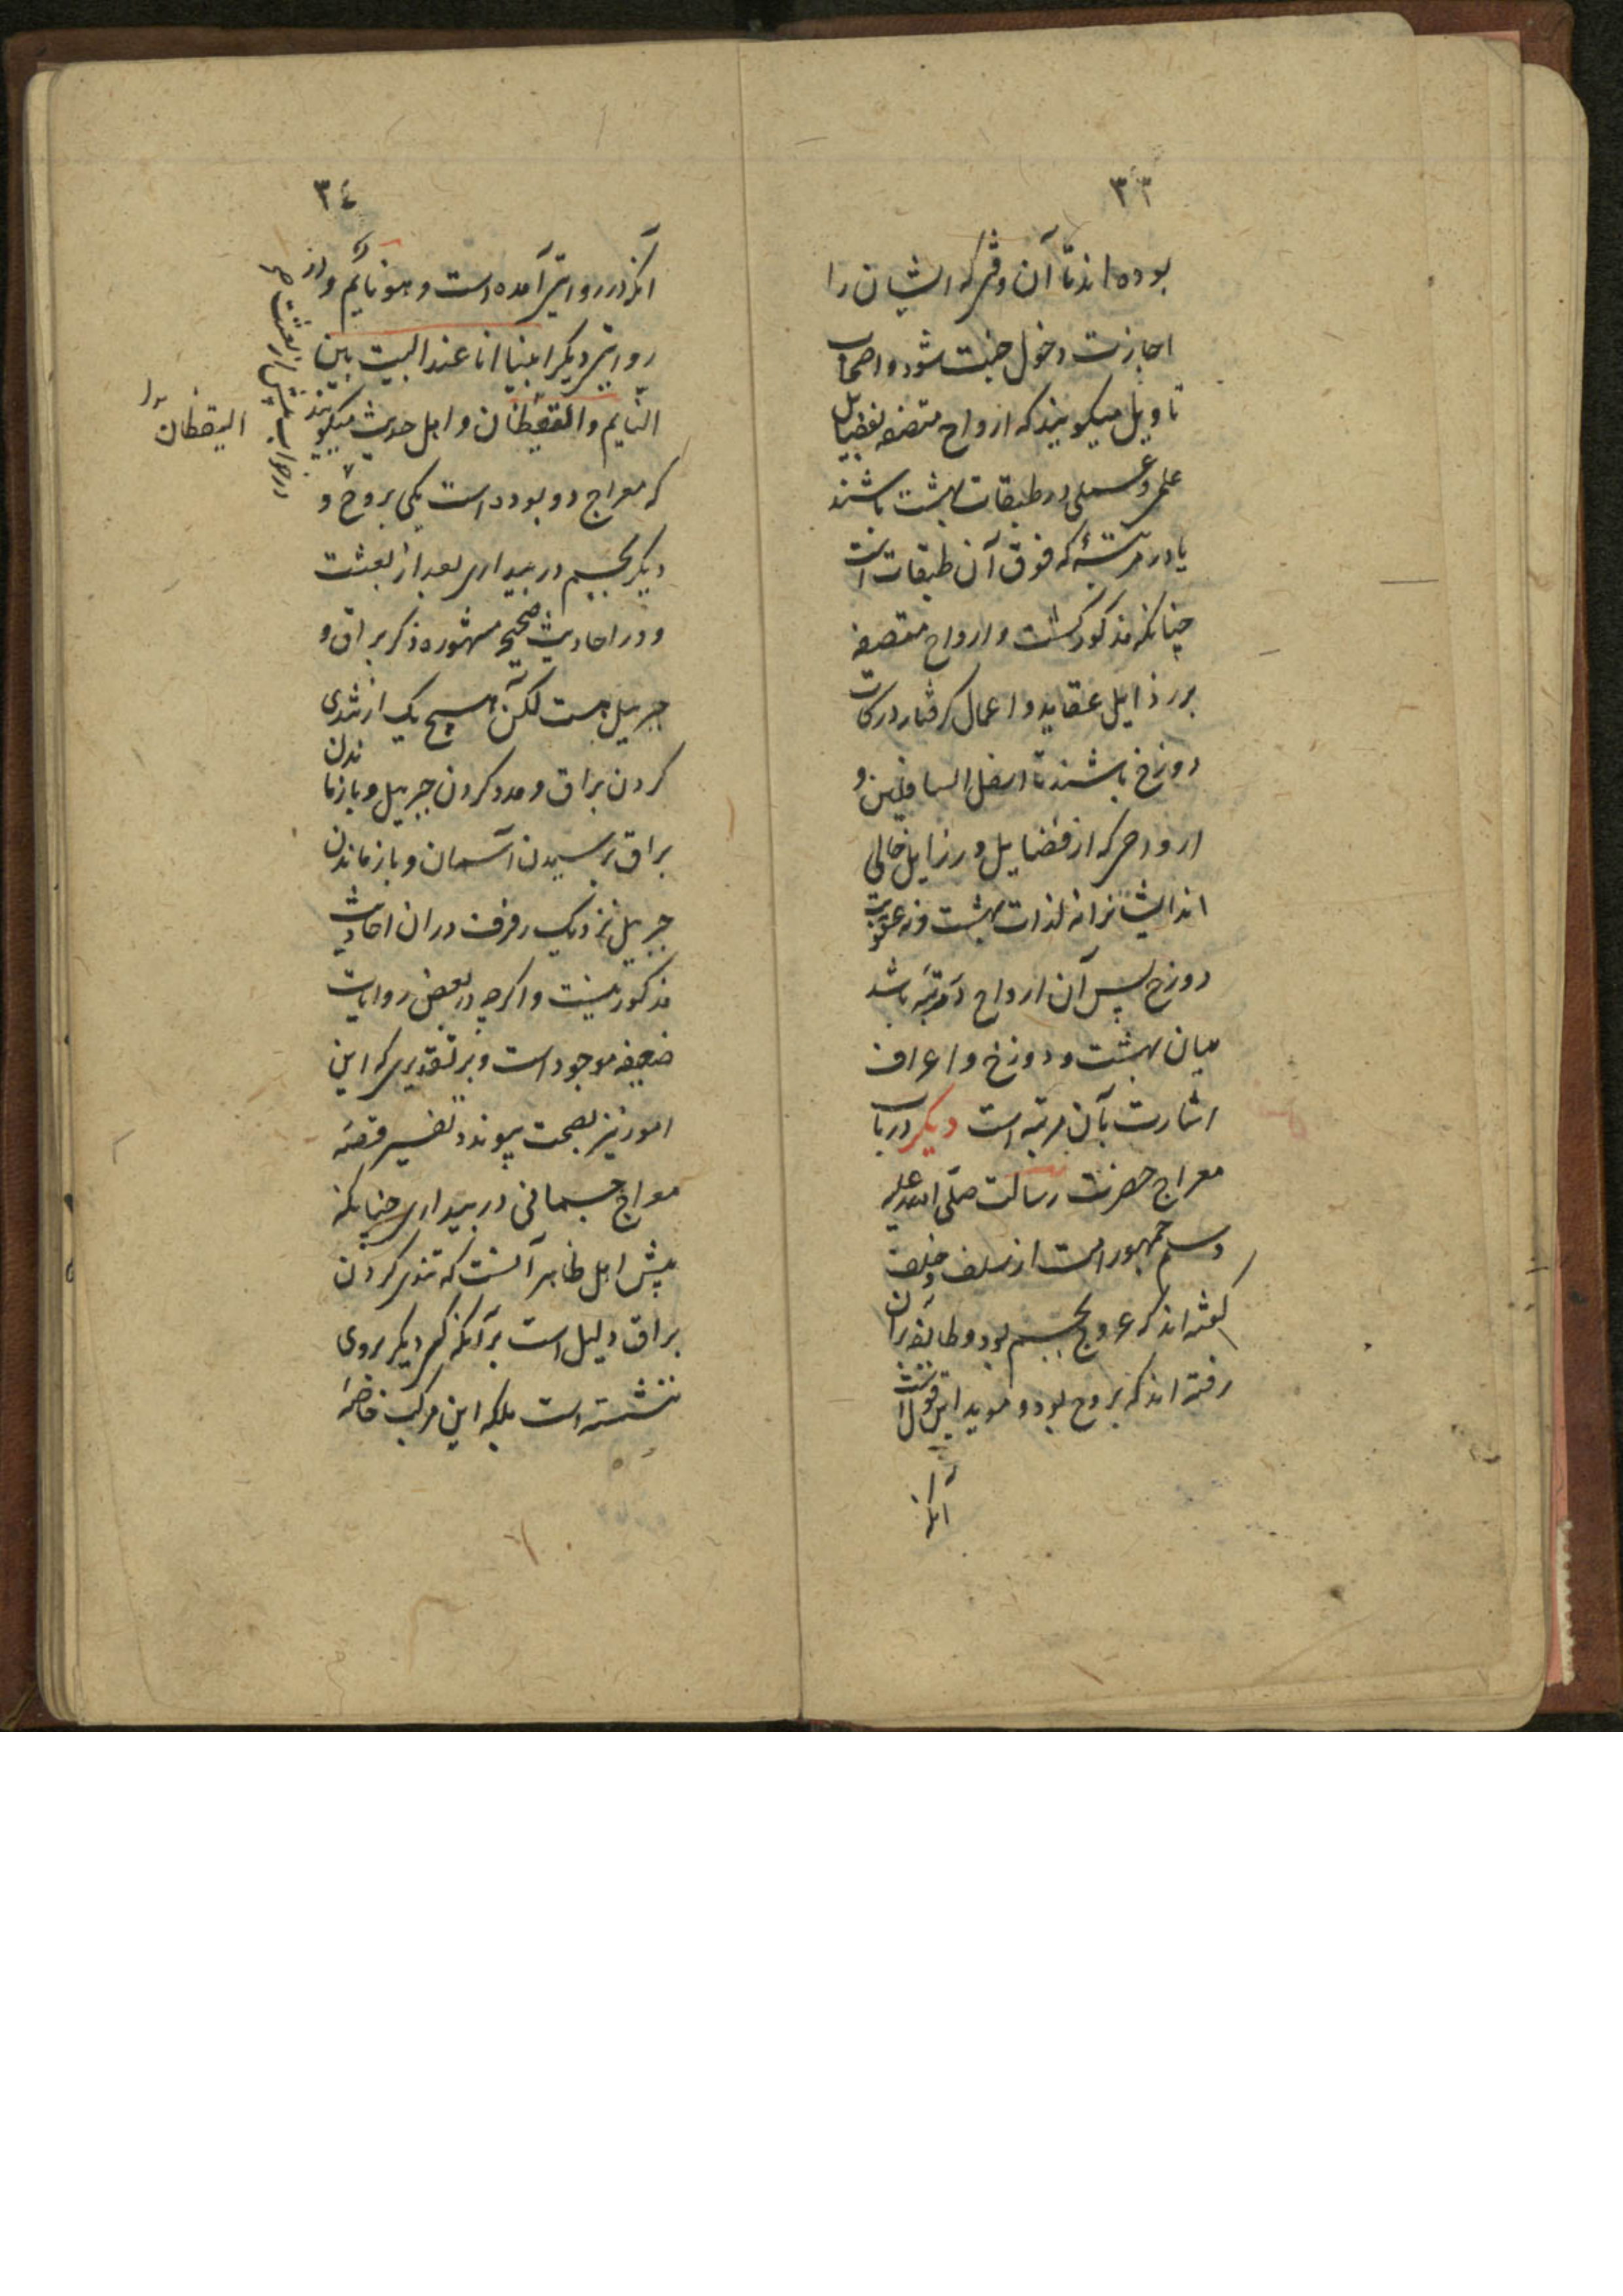 ۳۳
بوده اند تا آن وقتی که ایشان را
اجازت دخول جنت شود و اصحاب
تاویل میکویند که ارواح متصفه بفضایل
علمی و عملی در طبقات بهشت باشند
یا در مرتبۀ که فوق آن طبقات است
چنانکه مذکور کشت و ارواح متصفه
برذایل عقاید و اعمال کرفتار درکات
دوزخ باشند تا اسفل السافلین و
ارواحی که از فضایل و رزایل خالی
اند ایشانرا نه لذات بهشت و نه عقوبت
دوزخ پس آن ارواح در مرتبه باشد
میان بهشت و دوزخ و اعراف
اشارت بآن مرتبه است دیکر در باب
معراج حضرت رسالت صلی الله علیه
وسلم جمهور امت از سلف و خلف
کفته اند که عروج بجسم بود و طائفه بران
رفته اند که بروح بود و موید این قول است
آنکه
۳٤
آنکه در روایتی آمده است و هو نایم و در
روایتی دیکر بینا انا عند البیت بین
النایم والیقظان و اهل حدیث میکویند
که معراج دو بوده است یکی بروح و
دیکر بجسم در بیداری بعد از بعثت
و در احادیث صحیح مشهوره ذکر براق و
جبریل هست لکن هیچ یک از تندی
کردن براق و مدد کردن جبریل و بازماندن
براق برسیدن آسمان و بازماندن
جبریل نزدیک رفرف در ان احادیث
مذکور نیست و اکرچه در بعض روایات
ضعیفه موجود است و بر تقدیری که این
امور نیز بصحت پیوندد تفسیر قصه
معراج جسمانی در بیداری چنانکه
پیش اهل ظاهر آنست که تندی کردن
براق دلیل است بر آنکه کسی دیکر بروی
ننشسته است بلکه این مرکب خاصه
در خواب پیش از بعثت صح
الیقظان بدل